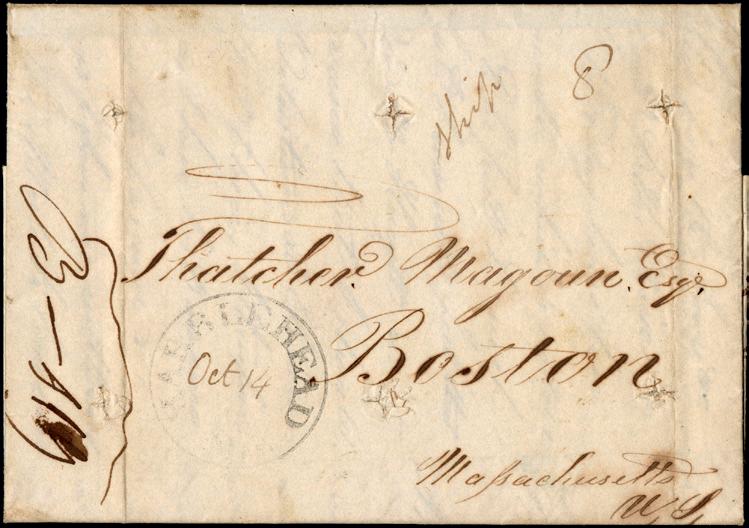 ship 8
Thatcher Magoun. Esqr.
Boston
MARBLEHEAD
Oct 14
Massachusetts
U S